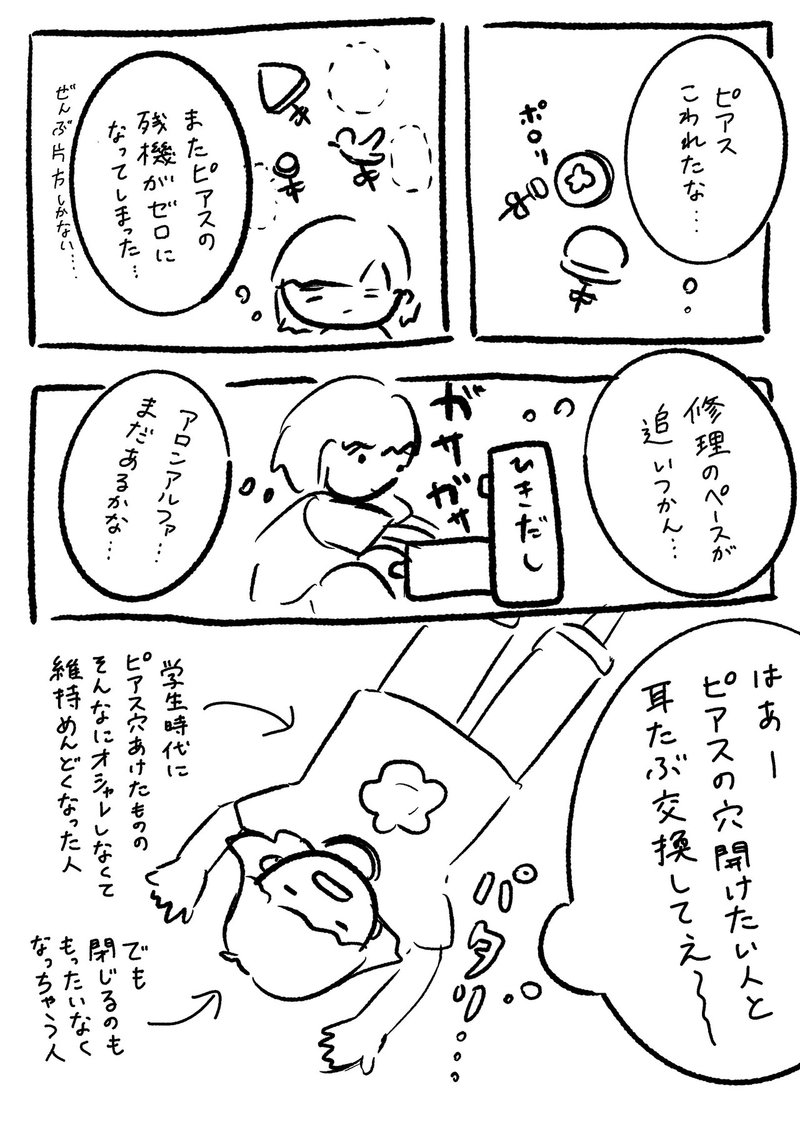 ピアス
こわれたな…
ポロッ
またピアスの
残機がゼロに
なってしまった…
ぜんぶ片方しかない……
修理のペースが
追いつかん…
ガサガサ
ひきだし
アロンアルファ…
まだあるかな…
はぁー
ピアスの穴開けたい人と
耳たぶ交換してえ〜〜
パタリ…
学生時代に
ピアス穴あけたものの
そんなにオシャレしなくて
維持めんどくなった人
でも
閉じるのも
もったいなく
なっちゃう人